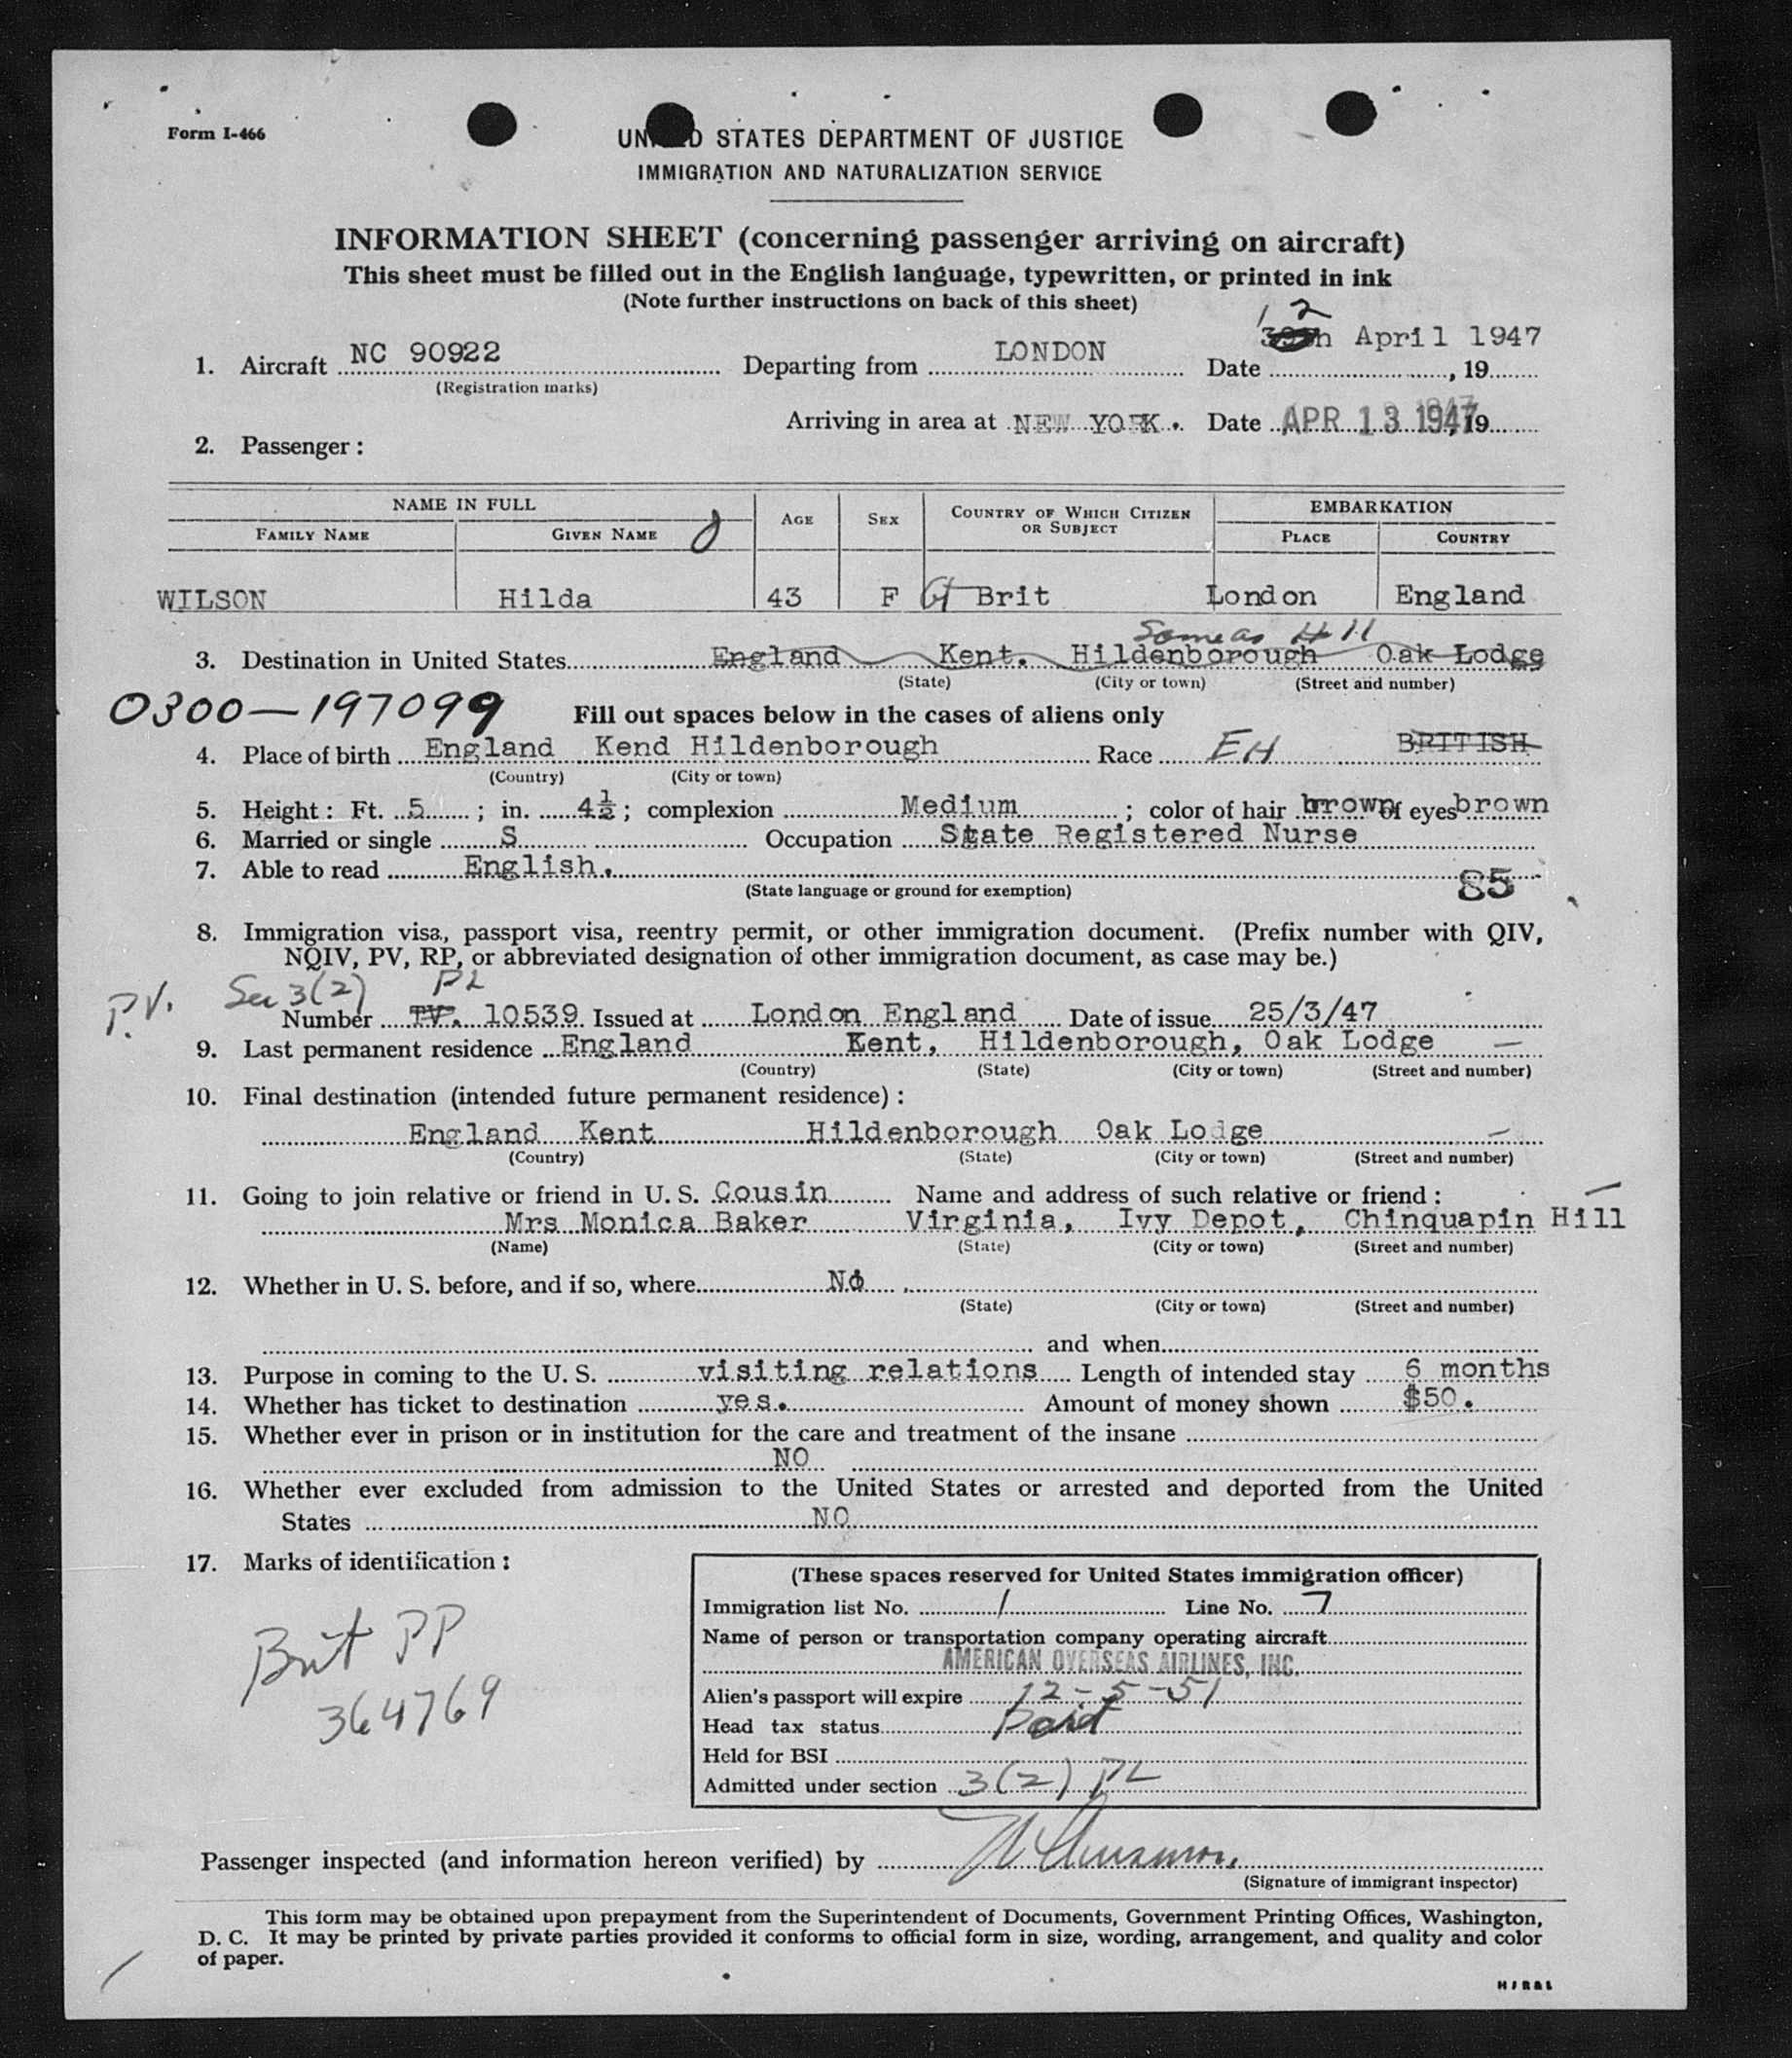 Form I-466
UNITED STATES DEPARTMENT OF JUSTICE
IMMIGRATION AND NATURALIZATION SERVICE
INFORMATION SHEET (concerning passenger arriving on aircraft)
This sheet must be filled out in the English language, typewritten, or printed in ink
(Note further instructions on back of this sheet)
12
1. Aircraft NC 90922 Departing from LONDON Date April 1947, 19
(Registration marks)
Arriving in area at NEW YORK. Date APR 13 1947, 19
2. Passenger:
NAME IN FULL AGE SEX COUNTRY OF WHICH CITIZEN OR SUBJECT EMBARKATION
FAMILY NAME GIVEN NAME PLACE COUNTRY
WILSON Hilda 43 F Brit London England
Same as # 11
3. Destination in United States England Kent. Hildenborough Oak Lodge
(State) (City or town) (Street and number)
0300-197099 Fill out spaces below in the cases of aliens only
4. Place of birth England Kend Hildenborough Race EH BRITISH
(Country) (City or town)
5. Height: Ft. 5; in. 4½; complexion Medium; color of hair brown of eyes brown
6. Married or single S Occupation State Registered Nurse
7. Able to read English.
(State language or ground for exemption) 85
8. Immigration visa, passport visa, reentry permit, or other immigration document. (Prefix number with QIV,
NQIV, PV, RP, or abbreviated designation of other immigration document, as case may be.)
P.V. Sec 3(2) PL
Number TV. 10539 Issued at London England Date of issue 25/3/47
9. Last permanent residence England Kent, Hildenborough, Oak Lodge —
(Country) (State) (City or town) (Street and number)
10. Final destination (intended future permanent residence):
England Kent Hildenborough Oak Lodge —
(Country) (State) (City or town) (Street and number)
11. Going to join relative or friend in U. S. Cousin Name and address of such relative or friend:
Mrs Monica Baker Virginia, Ivy Depot, Chinquapin Hill
(Name) (State) (City or town) (Street and number)
12. Whether in U. S. before, and if so, where No.
(State) (City or town) (Street and number)
and when
13. Purpose in coming to the U. S. visiting relations Length of intended stay 6 months
14. Whether has ticket to destination yes. Amount of money shown $50.
15. Whether ever in prison or in institution for the care and treatment of the insane
NO
16. Whether ever excluded from admission to the United States or arrested and deported from the United
States NO
17. Marks of identification:
Brit PP
364769
(These spaces reserved for United States immigration officer)
Immigration list No. 1 Line No. 7
Name of person or transportation company operating aircraft
AMERICAN OVERSEAS AIRLINES, INC.
Alien's passport will expire 12-5-51
Head tax status Paid
Held for BSI
Admitted under section 3(2) PL
Passenger inspected (and information hereon verified) by
(Signature of immigrant inspector)
This form may be obtained upon prepayment from the Superintendent of Documents, Government Printing Offices, Washington,
D. C. It may be printed by private parties provided it conforms to official form in size, wording, arrangement, and quality and color
of paper.